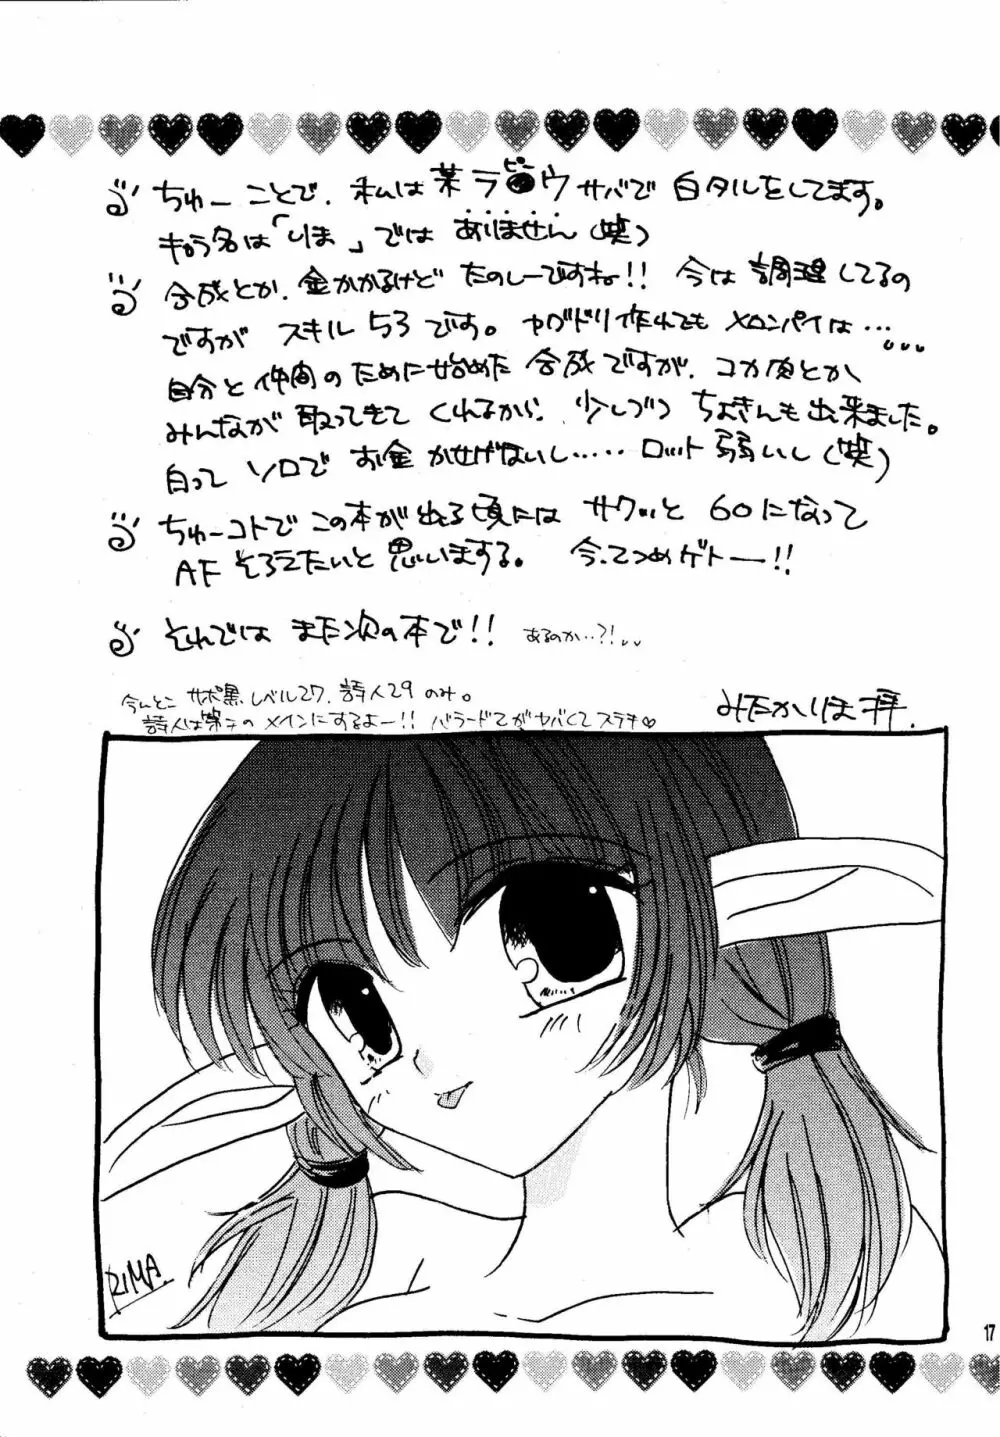 ちゅーことで、私は某ラ●ウサバで白タルをしてます。
ピー
キャラ名は「りま」ではありません(笑)
合成とか、金かかるけどたのしーですね!! 今は調理してるの
ですがスキル53です。ヤグドリ作れてもメロンパイは…
自分と仲間のために始めた合成ですが、コカ肉とか
みんなが取ってきてくれるから、少しづつちょきんも出来ました。
白ってソロでお金かせげないし‥‥ロット弱いし(笑)
ちゅーコトでこの本が出る頃にはサクッと60になって
AFそろえたいと思いまする。 今、てつめゲトー!!
それではまた次の本で!! あるのか‥?!
今んとこサポ黒レベル27、詩人29のみ。
詩人は第二のメインにするよー!! バラードでがヤバくてステキ♡
みたかりま拝.
RIMA.
17